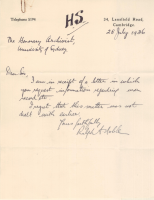 Telephone 2109
HS.
54, Lensfield Road,
Cambridge.
28 July 1936
The Honorary Archivist,
University of Sydney
Dear Sir,
I am in receipt of a letter in which
you request information regarding war
record etc.
I regret that this matter was not
dealt with earlier.
Yours faithfully
Ralph